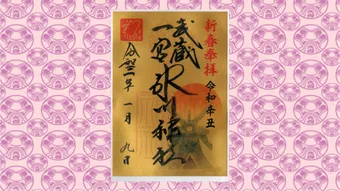 新春奉拝
令和辛丑
武蔵
一宮氷川神社
令和三年
一月
九日